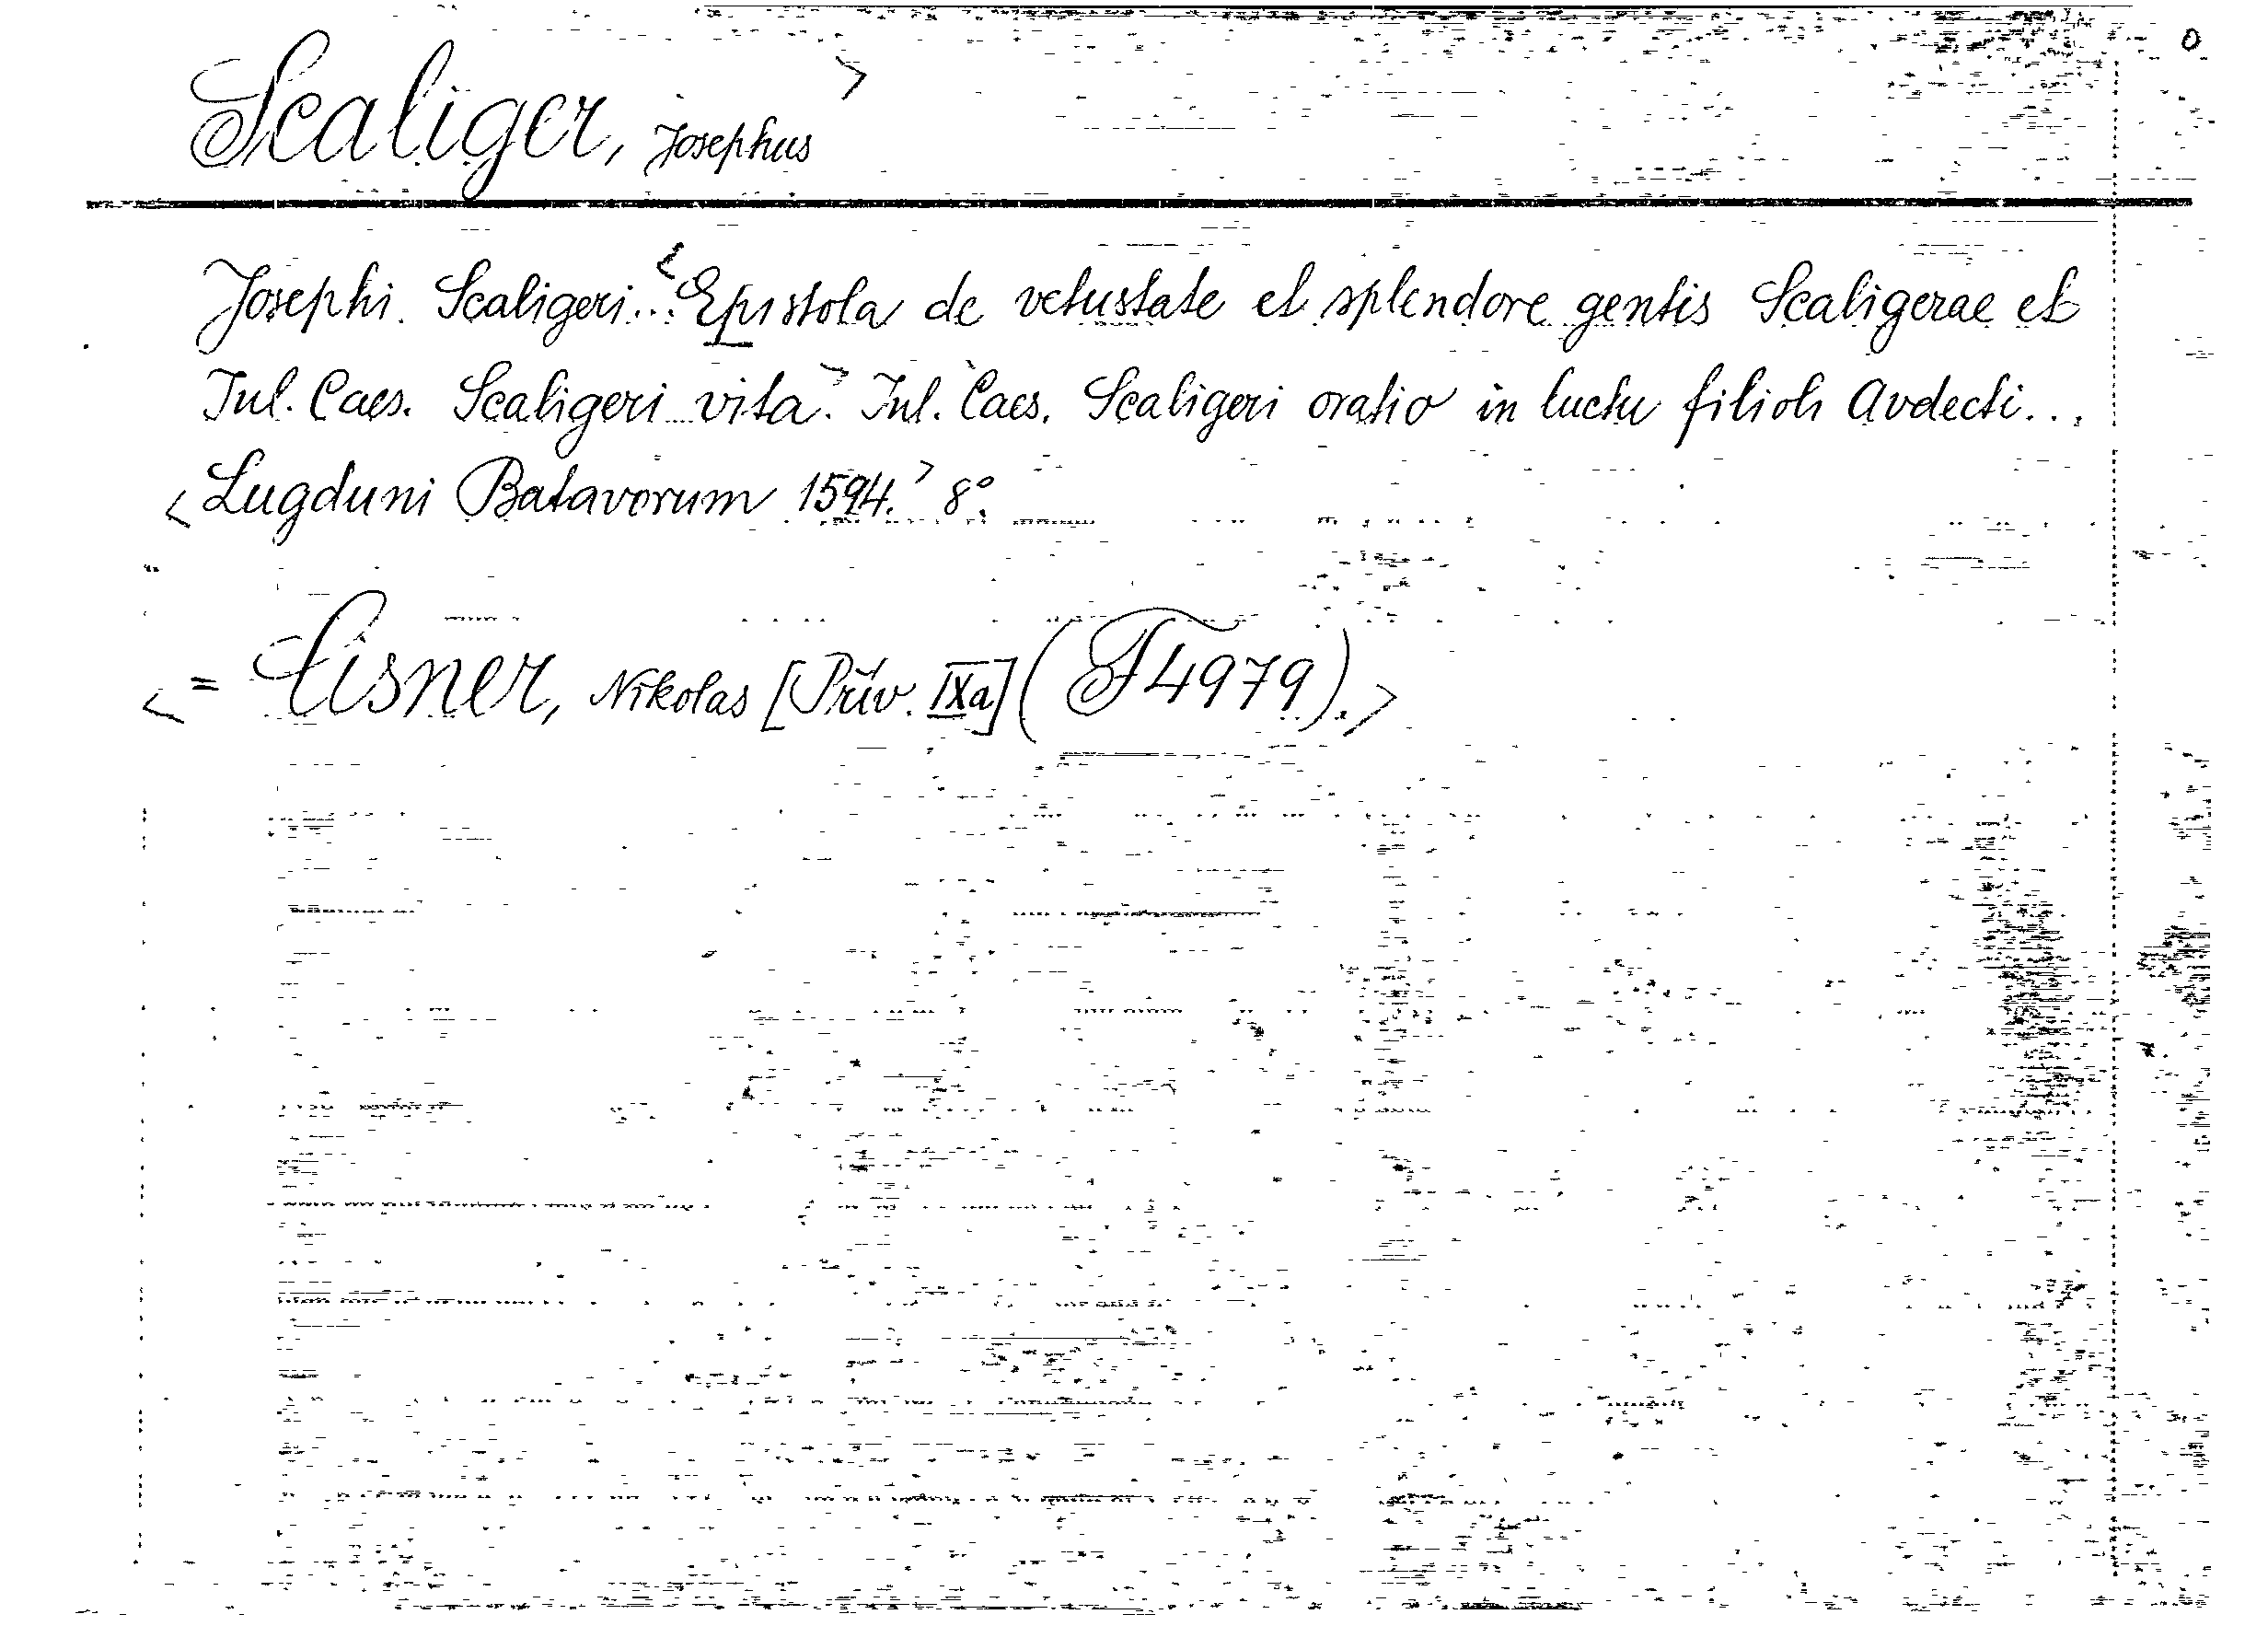 Scaliger, Josephus >
Josephi Scaligeri... < Epistola de vetustate et splendore gentis Scaligerae et
Jul. Caes. Scaligeri vita. > Jul. Caes. Scaligeri oratio in luctu filioli Avdecti...
< Lugduni Batavorum 1594. > 8°.
< = Cisner, Nikolas [Přív. IXa] (F 4979). >